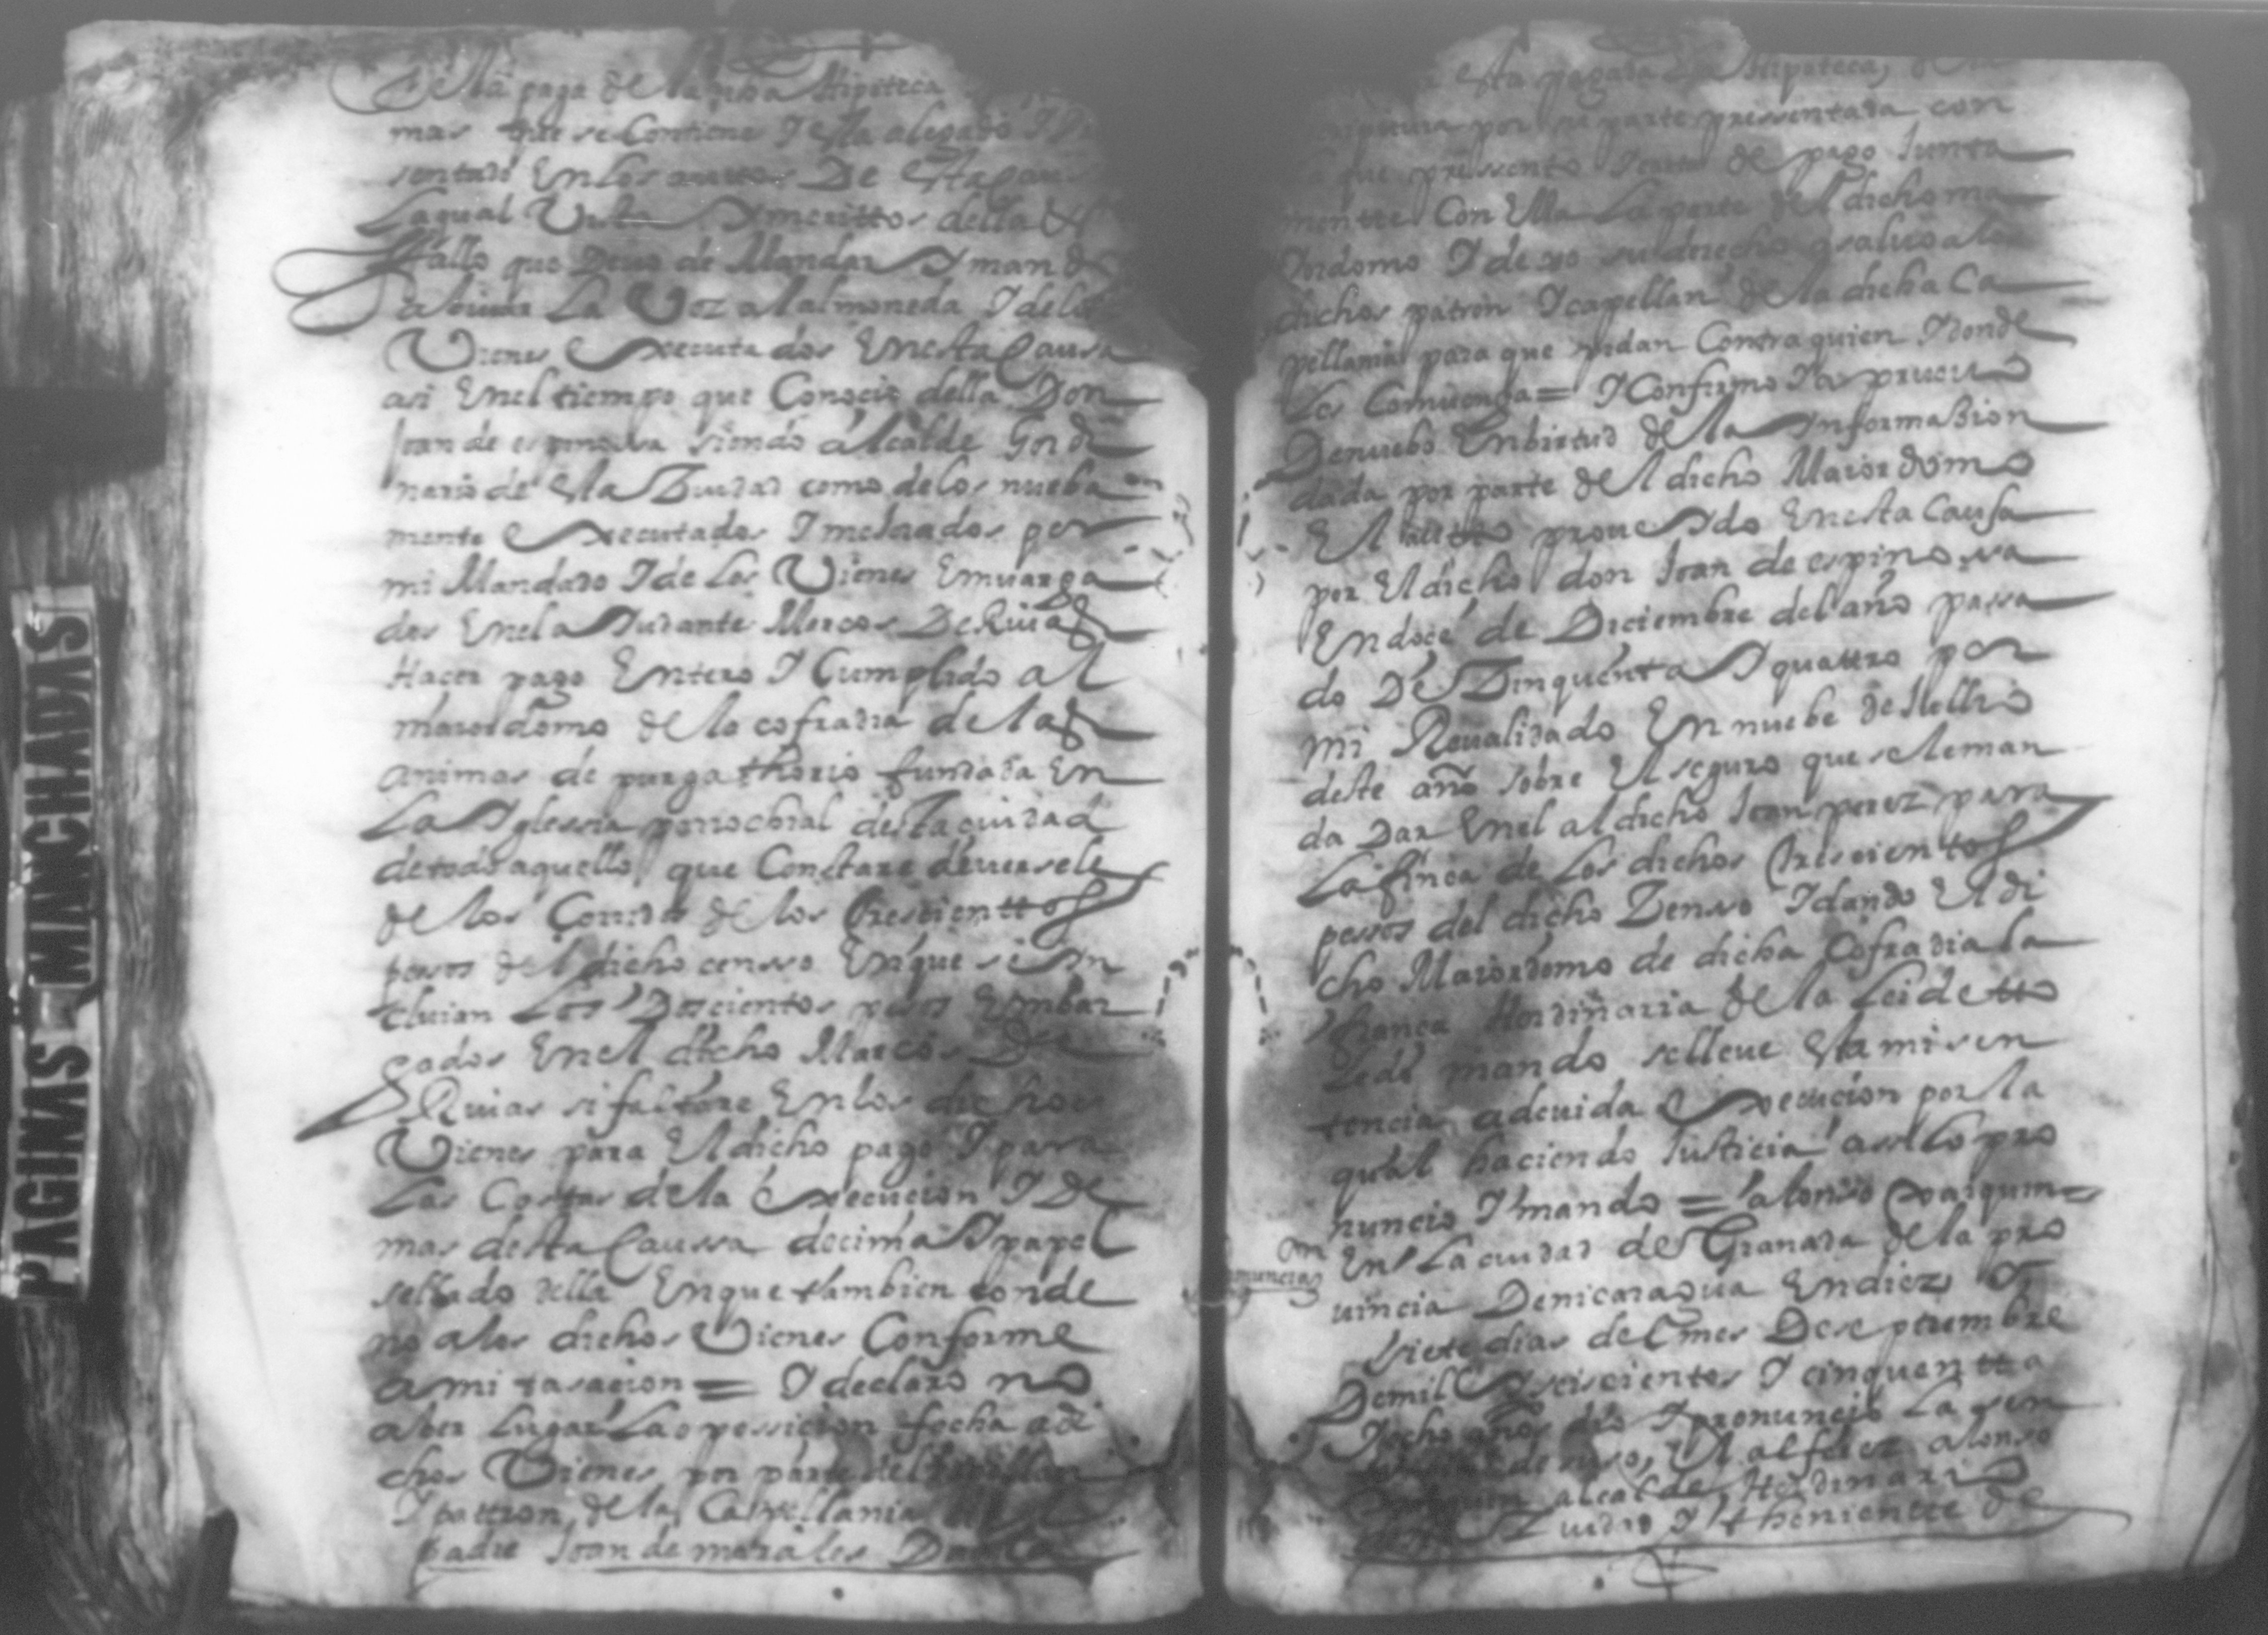 PAGINAS MANCHADAS
esta paga de la Hipoteca
mas que se Contiene Y esta alegado Y
sentado En los autos De esta Caus
La qual Vista Y meritos della &
Fallo que Devo de Mandar Y mando
La Voz al almoneda Y de los
Vienes Executados En esta Caussa
asi En el tiempo que Conocio della Don
Joan de espinossa siendo alcalde hordi
nario de esta Ziudad como de los nueba
mente Executados Y mejorados por
mi Mandado Y de Los Vienes Emvarga
dos En el aYudante Marcos De Ruias
Hacer pago Entero Y Cumplido al
maiordomo de la cofradia de las
animas de purgathorio fundada En
La Yglessia parrochial desta ciudad
de todo aquello que Constare deversele
de los Corridos de los trescienttos
pesos del dicho censso En que se Yn
cluian Los Doscientos pesos Embar
gados En el dicho Marcos De
Ruias si faltare En los dichos
Vienes para El dicho pago Y para
Las Costas de la Execucion Y De
mas desta Caussa decima Y papel
sellado della En que tambien conde
no a los dichos Vienes Conforme
a mi tasacion = Y declaro no
aber Lugar La opossicion fecha a di
chos Vienes por parte del Capellan
Y pattron de la Capellania del
padre Joan de morales Davila
esta pagada La Hipoteca, de la
escriptura por su parte pressentada con
la que pressento Carta de pago Junta
mentte Con Ella La parte del dicho ma
Yordomo Y dexo su derecho a salvo a los
dichos patron Y capellan de la dicha Ca
pellania para que pidan Contra quien Y donde
Les Comvenga = Y Confirmo Y apruevo
De nuebo En birtud de la Ynformazion
dada por parte del dicho Maiordomo
El autto proveYdo En esta Causa
por El dicho don Joan de espinossa
En doce de Diciembre del año passa
do De Zinquenta Y quattro por
mi Revalidado En nuebe de
deste año sobre El seguro que se le man
da Dar En el al dicho Joan perez para
La finca de Los dichos trescientos
pessos del dicho Zensso Y dando El di
cho Maiordomo de dicha Cofradia la
fiança Hordinaria de la Lei de tto
ledo mando se lleve esta mi sen
tencia a devida Execucion por la
qual haciendo Justicia assi lo pro
nuncio Y mando = alonsso
En La ciudad de Granada de la pro
vincia De nicaragua En diez Y
siete dias del mes De septiembre
De mill Y seiscientos Y cinquentta
Y ocho años dio Y pronuncio La sen
tencia de suso, El alferez alonso
alcalde Hordinario
Ziudad Y thenientte de